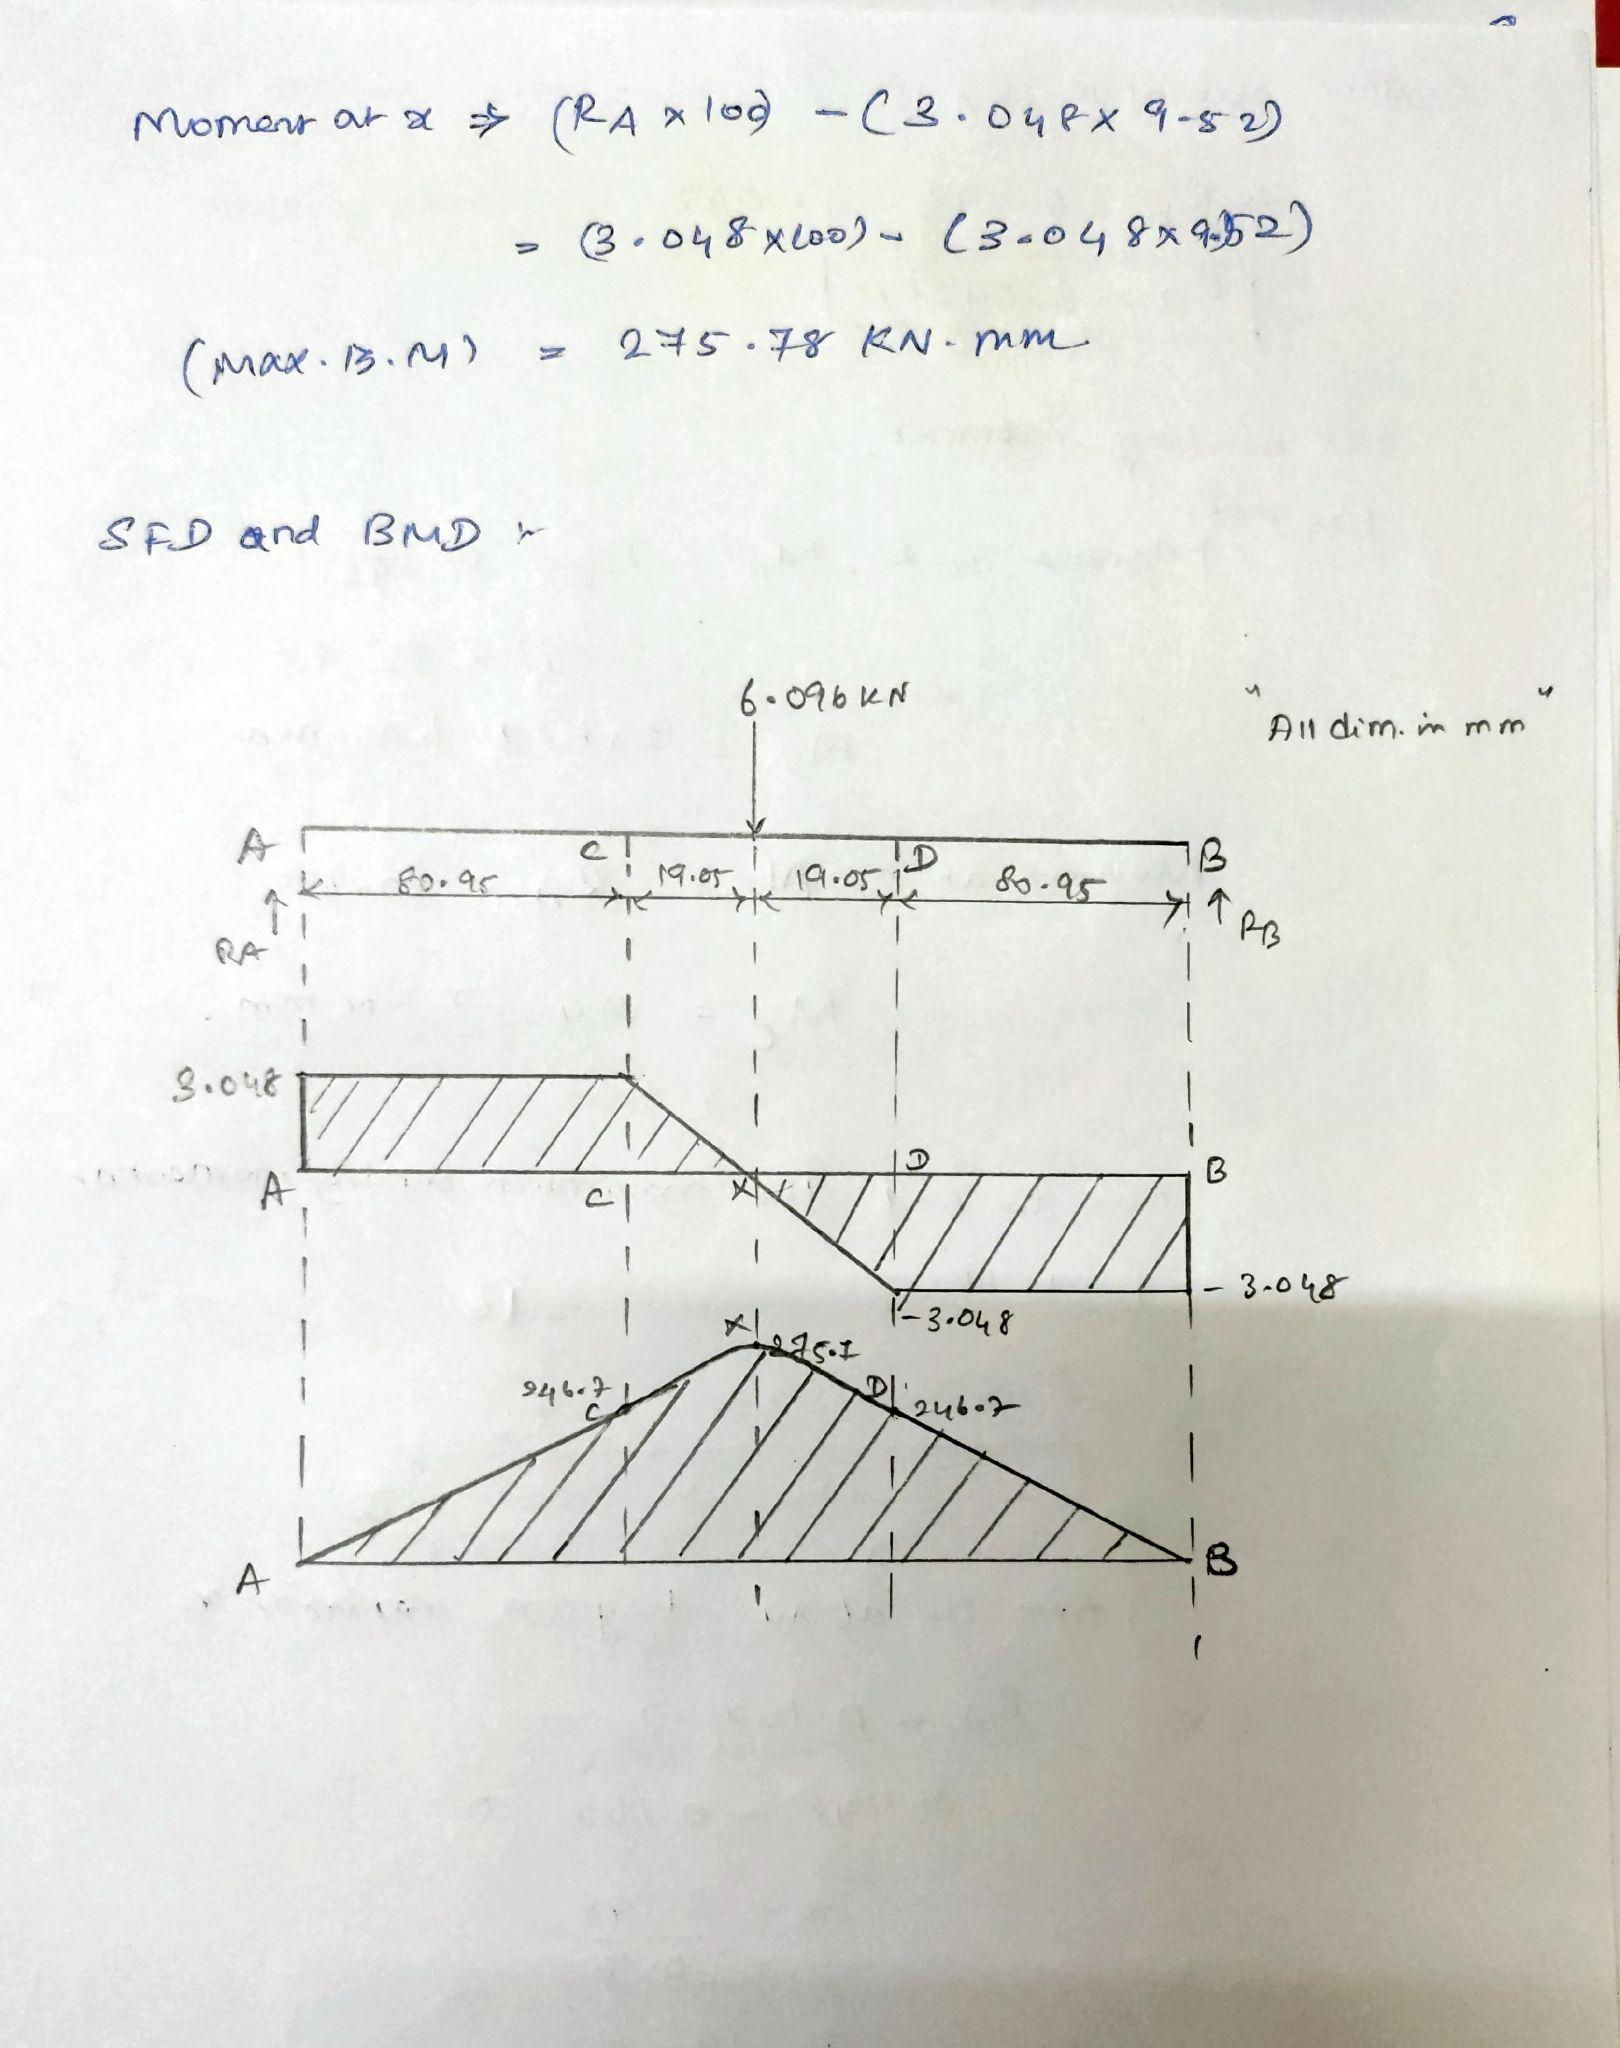 Moment at x ⇒ (RA x 100) - (3.048 x 9.52)
= (3.048 x 100) - (3.048 x 9.52)
(Max. B.M) = 275.78 KN.mm
SFD and BMD :-
6.096 KN
"All dim. in mm"
A C D B
80.95 19.05 19.05 80.95
RA RB
3.048
D B
A C X
-3.048
-3.048
X 275.7
246.7 C D 246.7
A B